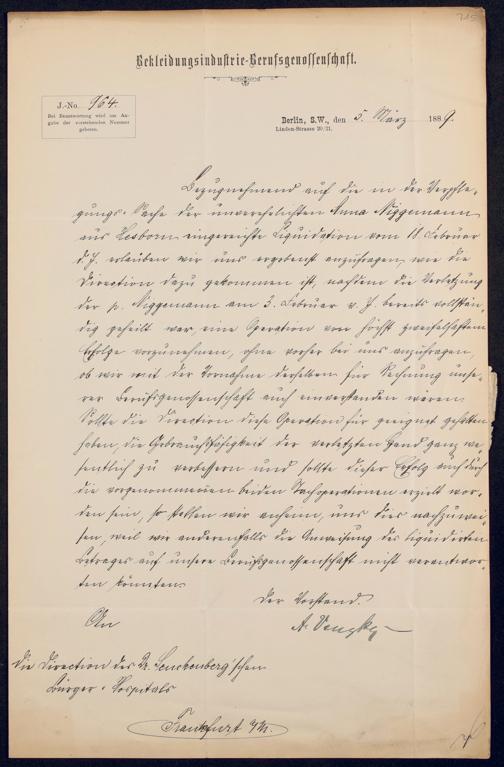 715
Bekleidungsindustrie-Berufsgenossenschaft.
J.-No. 964.
Bei Beantwortung wird um An-
gabe der vorstehenden Nummer
gebeten.
Berlin, S.W., den 5. März 1889.
Linden-Strasse 20/21.
Bezugnehmend auf die in der Verpfle-
gungs-Sache der unverehelichten Anna Niggemann
aus Hesborn eingereichte Liquidation vom 18 Februar
d. J. erlauben wir uns ergebenst anzufragen, wie die
Direction dazu gekommen ist, nachdem die Verletzung
der p. Niggemann am 3. Februar v. J. bereits vollstän-
dig geheilt war, eine Operation von höchst zweifelhaftem
Erfolge vorzunehmen, ohne vorher bei uns anzufragen,
ob wir mit der Vornahme derselben für Rechnung unse-
rer Berufsgenossenschaft auch einverstanden wären.
Sollte die Direction diese Operation für geeignet gehalten
haben, die Gebrauchsfähigkeit der verletzten Hand ganz we-
sentlich zu verbessern und sollte dieser Erfolg auch durch
die vorgenommenen beiden Nachoperationen erzielt wor-
den sein, so stellen wir anheim, uns dies nachzuwei-
sen, weil wir anderenfalls die Anweisung des liquidirten
Betrages auf unsere Berufsgenossenschaft nicht verantwor-
ten könnten.
Der Vorstand.
An
die Direction des Dr. Senckenberg'schen
Bürger-Hospitals
Frankfurt a/M.